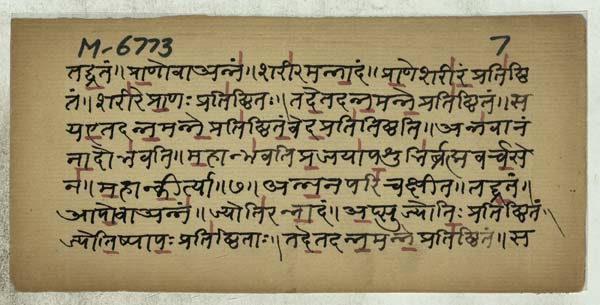 M-6773 7
तद्व्रतं॥ प्राणोवाअन्नं॥ शरीरमन्नादं॥ प्राणेशरीरं प्रतिष्ठि
तं॥ शरीरेप्राणः प्रतिष्ठितः॥ तदेतदन्नमन्ने प्रतिष्ठितं॥ स
यएतदन्नमन्ने प्रतिष्ठितंवेद प्रतितिष्ठति॥ अन्नवानं
नादोभवति॥ महान्भवति प्रजयापशुभिर्ब्रह्मवर्चसे
न॥ महान्कीर्त्या॥७॥ अन्नंनपरिचक्षीत॥ तद्व्रतं॥
आपोवाअन्नं॥ ज्योतिरन्नादं॥ अप्सुज्योतिः प्रतिष्ठितं॥
ज्योतिष्यापः प्रतिष्ठिताः॥ तदेतदन्नमन्ने प्रतिष्ठितं॥ स